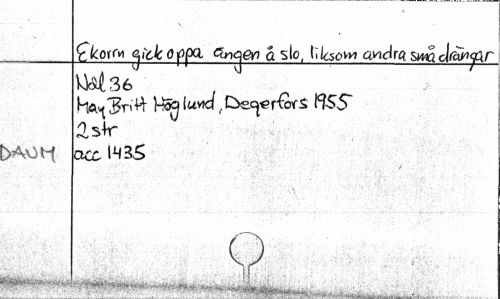 Ekorrn gick oppa ängen å slo, liksom andra små drängar
Nol 36
May Britt Höglund, Degerfors 1955
2 str
DAUM acc 1435